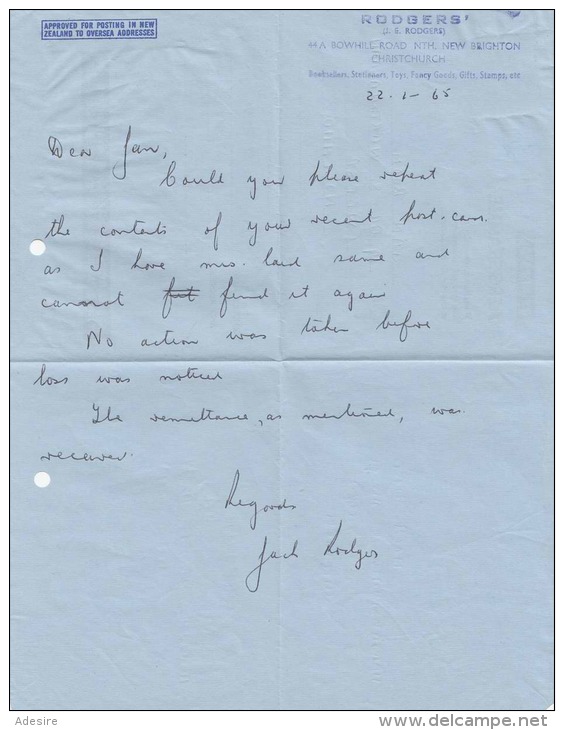 APPROVED FOR POSTING IN NEW
ZEALAND TO OVERSEA ADDRESSES
RODGERS'
(J. S. RODGERS)
44A BOWHILL ROAD NTH. NEW BRIGHTON
CHRISTCHURCH
Booksellers, Stationers, Toys, Fancy Goods, Gifts, Stamps, etc
22-1-65
Dear Jan,
Could you please repeat
the contents of your recent post-card
as I have mis-laid same and
cannot fut find it again
No action was taken before
loss was noticed
The remittance, as mentioned, was
received.
Regards
Jack Rodgers
Adesire
www.delcampe.net